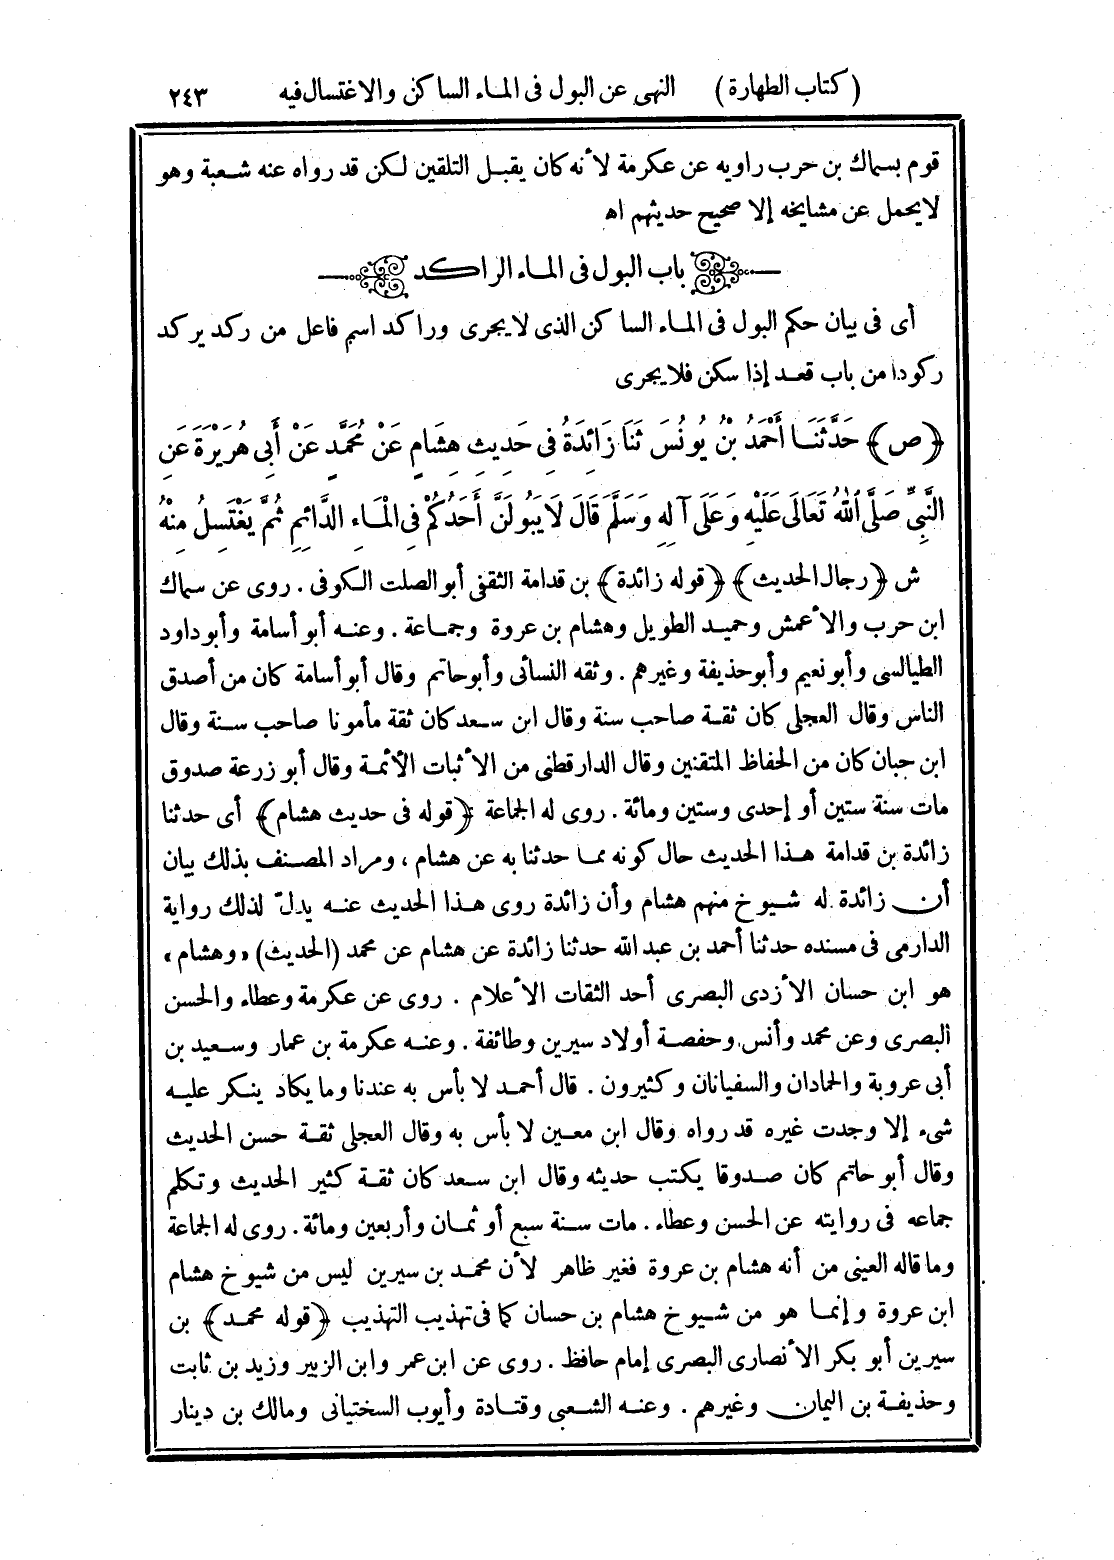 (كتاب الطهارة) النهى عن البول فى الماء الساكن والاغتسال فيه ٢٤٣
قوم بسماك بن حرب راويه عن عكرمة لأنه كان يقبل التلقين لكن قد رواه عنه شعبة وهو
لا يحمل عن مشايخه إلا صحيح حديثهم اه
باب البول فى الماء الراكد
أى فى بيان حكم البول فى الماء الساكن الذى لا يجرى وراكد اسم فاعل من ركد يركد
ركودا من باب قعد إذا سكن فلا يجرى
﴿ص﴾ حَدَّثَنَا أَحْمَدُ بْنُ يُونُسَ ثَنَا زَائِدَةُ فِى حَدِيثِ هِشَامٍ عَنْ مُحَمَّدٍ عَنْ أَبِى هُرَيْرَةَ عَنِ
النَّبِىِّ صَلَّى اللهُ تَعَالَى عَلَيْهِ وَعَلَى آلِهِ وَسَلَّمَ قَالَ لَا يَبُولَنَّ أَحَدُكُمْ فِى الْمَاءِ الدَّائِمِ ثُمَّ يَغْتَسِلُ مِنْهُ
ش ﴿رجال الحديث﴾ ﴿قوله زائدة﴾ بن قدامة الثقفى أبو الصلت الكوفى . روى عن سماك
ابن حرب والأعمش وحميد الطويل وهشام بن عروة وجماعة . وعنه أبو أسامة وأبو داود
الطيالسى وأبو نعيم وأبو حذيفة وغيرهم . وثقه النسائى وأبو حاتم وقال أبو أسامة كان من أصدق
الناس وقال العجلى كان ثقة صاحب سنة وقال ابن سعد كان ثقة مأمونا صاحب سنة وقال
ابن حبان كان من الحفاظ المتقنين وقال الدارقطنى من الأثبات الأئمة وقال أبو زرعة صدوق
مات سنة ستين أو إحدى وستين ومائة . روى له الجماعة ﴿قوله فى حديث هشام﴾ أى حدثنا
زائدة بن قدامة هذا الحديث حال كونه مما حدثنا به عن هشام ، ومراد المصنف بذلك بيان
أن زائدة له شيوخ منهم هشام وأن زائدة روى هذا الحديث عنه يدلّ لذلك رواية
الدارمى فى مسنده حدثنا أحمد بن عبد الله حدثنا زائدة عن هشام عن محمد (الحديث) «وهشام»
هو ابن حسان الأزدى البصرى أحد الثقات الأعلام . روى عن عكرمة وعطاء والحسن
البصرى وعن محمد وأنس وحفصة أولاد سيرين وطائفة . وعنه عكرمة بن عمار وسعيد بن
أبى عروبة والحمادان والسفيانان وكثيرون . قال أحمد لا بأس به عندنا وما يكاد ينكر عليه
شىء إلا وجدت غيره قد رواه وقال ابن معين لا بأس به وقال العجلى ثقة حسن الحديث
وقال أبو حاتم كان صدوقا يكتب حديثه وقال ابن سعد كان ثقة كثير الحديث وتكلم
جماعه فى روايته عن الحسن وعطاء . مات سنة سبع أو ثمان وأربعين ومائة . روى له الجماعة
وما قاله العينى من أنه هشام بن عروة فغير ظاهر لأن محمد بن سيرين ليس من شيوخ هشام
ابن عروة وإنما هو من شيوخ هشام بن حسان كما فى تهذيب التهذيب ﴿قوله محمد﴾ بن
سيرين أبو بكر الأنصارى البصرى إمام حافظ . روى عن ابن عمر وابن الزبير وزيد بن ثابت
وحذيفة بن اليمان وغيرهم . وعنه الشعبى وقتادة وأيوب السختيانى ومالك بن دينار